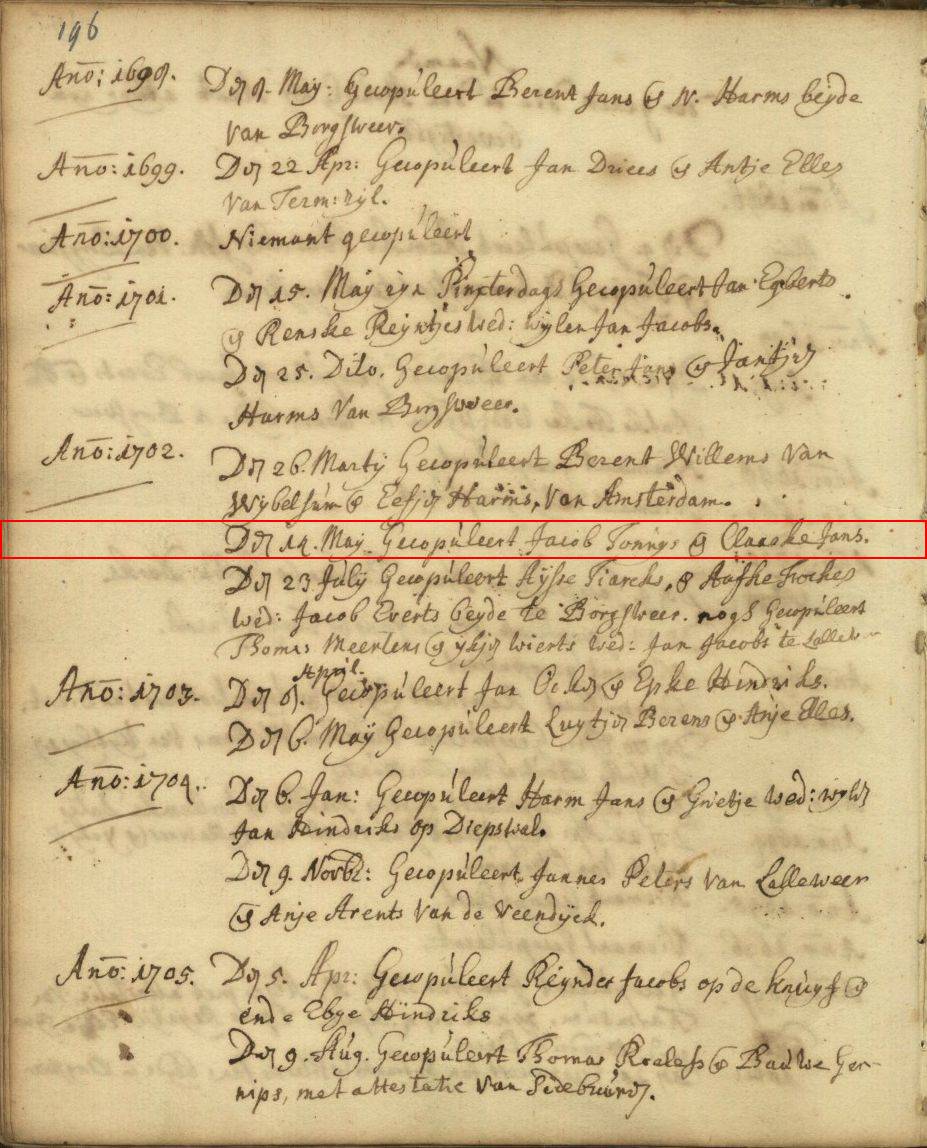 196
Año: 1698. Den 8. May: Gecopúleert Berent Jans & N. Harms beyde
van Borgsweer.
Año: 1699. Den 22 Apr: Gecopúleert Jan Driees & Antje Elles
van Term: zyl.
Año: 1700. Niemant gecopúleert
Año: 1701. Den 15. May zyn Pinxterdags Gecopúleert Jan Egberts
& Renske Reyntjes wed: wylen Jan Jacobs.
Den 25. Dito. Gecopúleert Peter Jans & Jantjen
Harms van Borgsweer.
Año: 1702. Den 26. Martij Gecopúleert Berent Willems van
Wybelsum & Eefjen Harms, van Amsterdam.
Den 14. May Gecopúleert Jacob Tonnys & Claaske Jans.
Den 23 July Gecopúleert Aysse Tiarcks, & Aafke Fockes
wed: Jacob Everts beyde te Borgsweer. nogh Gecopúleert
Thomas Meertens & wierts wed: Jan Jacobs te Lallew
April.
Año: 1703. Den 8. Gecopúleert Jan Ockes & Epke Hindriks.
Den 6. May Gecopúleert Luytjen Berens & Anje Elles.
Año: 1704. Den 6. Jan: Gecopúleert Harm Jans & Grietje wed: wylen
Jan Hindriks op Diepswal.
Den 9. Novbr: Gecopúleert Jannes Peters van Lalleweer
& Anje Arents van de Veendyck.
Año: 1705. Den 5. Apr: Gecopúleert Reynder Jacobs op de knuyf &
ende Ebye Hindriks
Den 9. Aúg. Gecopúleert Thomas Roelefs & Bauwe Ger-
nips, met attestatie van Sidebuiren.